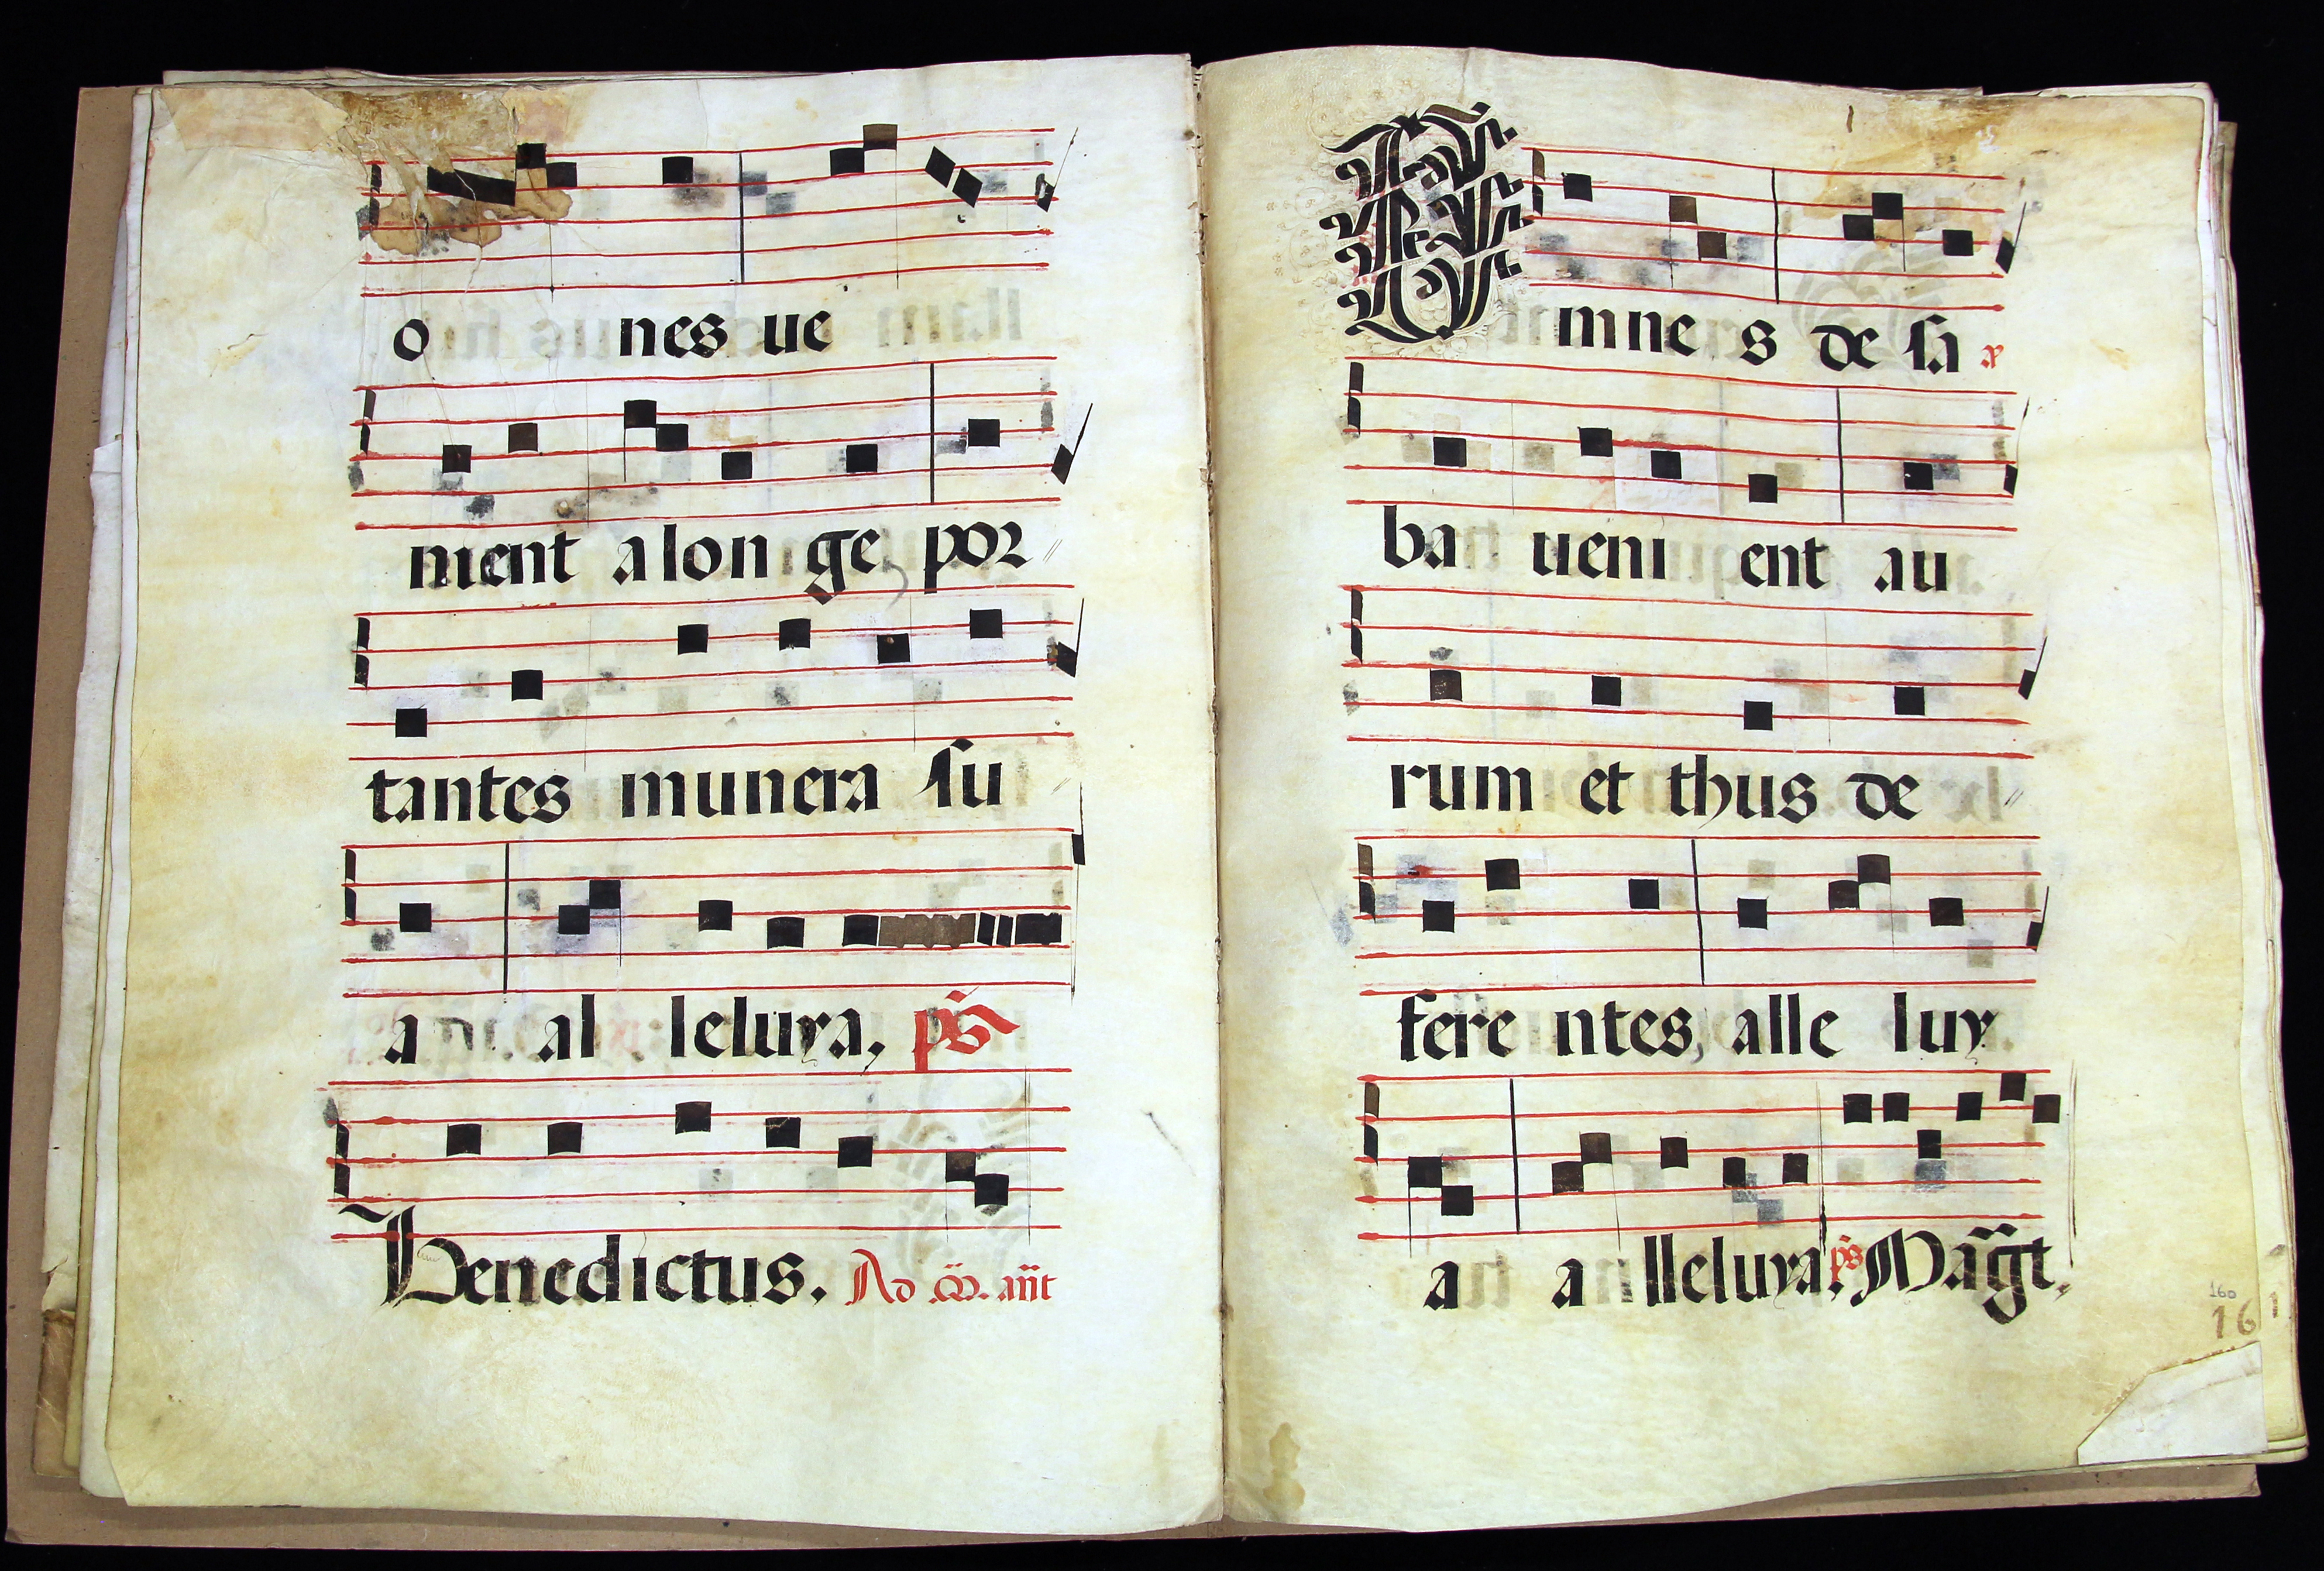 o nes ue
nient a lon ge, por //
tantes munera su
a al leluya, ps̃
Benedictus. Ad m̃. añt
Omne s de sa
ba ueni ent au
rum et thus de //
fere ntes, alle luy
a a lleluya. ps̃ Mag̃t.
160
161